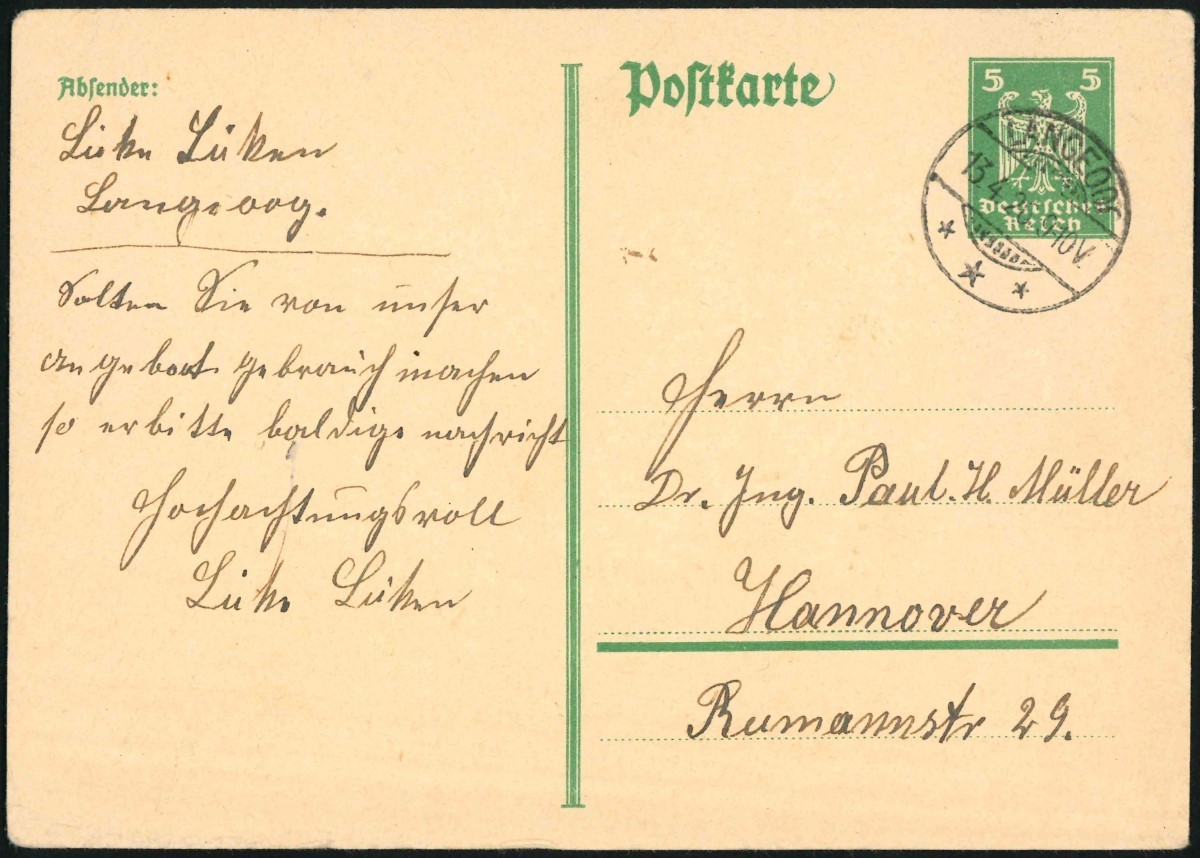 Absender:
Lüke Lüken
Langeoog.
Solten Sie von unser
angeboot gebrauch machen
so erbitte baldige nachricht
Hochachtungsvoll
Lüke Lüken
Postkarte
5 5
Deutsches
Reich
LANGEOOG
13.4. 9-10V.
Herrn
Dr. Ing. Paul. H. Müller
Hannover
Rumannstr 29.